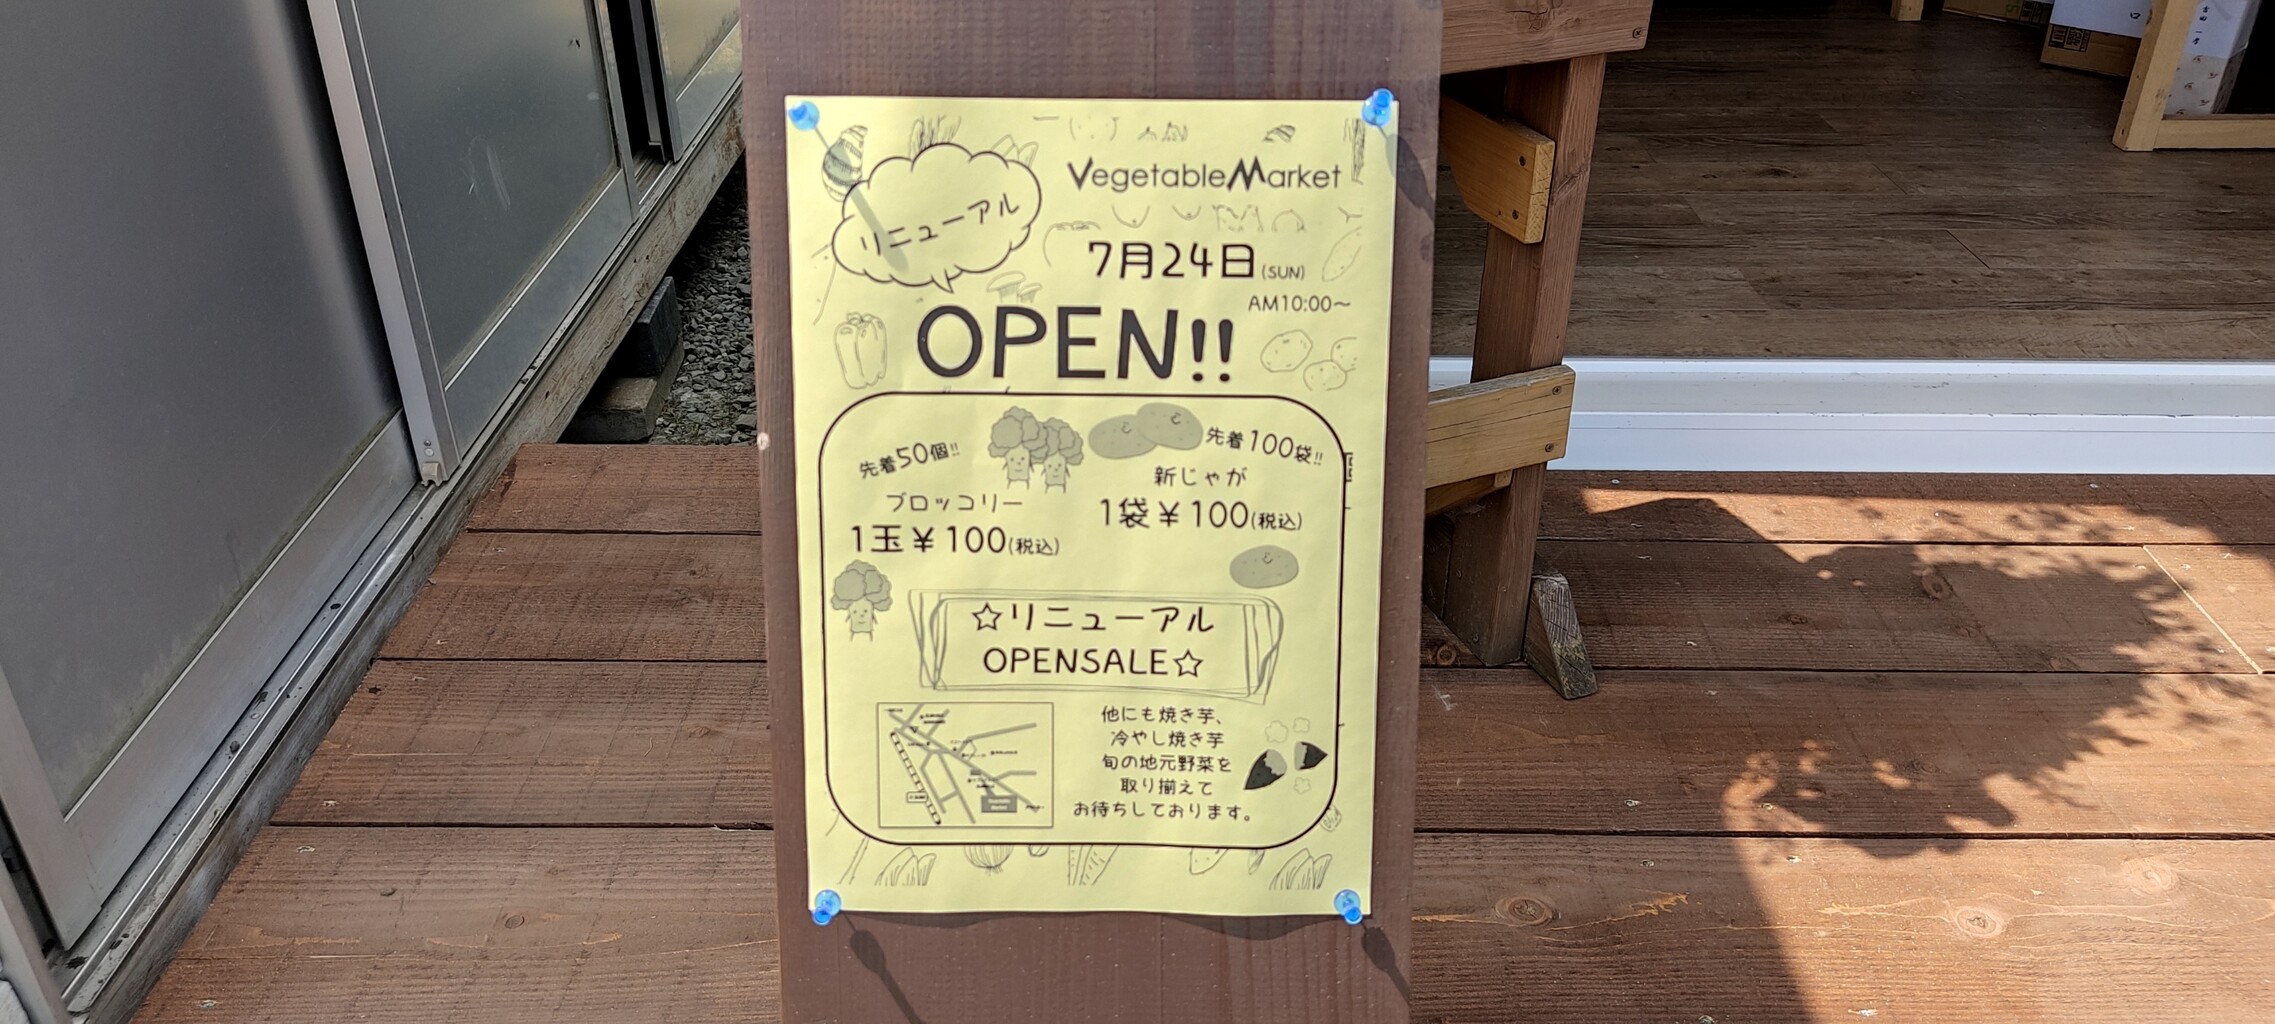 リニューアル
VegetableMarket
7月24日(SUN)
AM10:00～
OPEN!!
先着50個!!
ブロッコリー
1玉￥100(税込)
先着100袋!!
新じゃが
1袋￥100(税込)
☆リニューアル
OPENSALE☆
他にも焼き芋、
冷やし焼き芋
旬の地元野菜を
取り揃えて
お待ちしております。